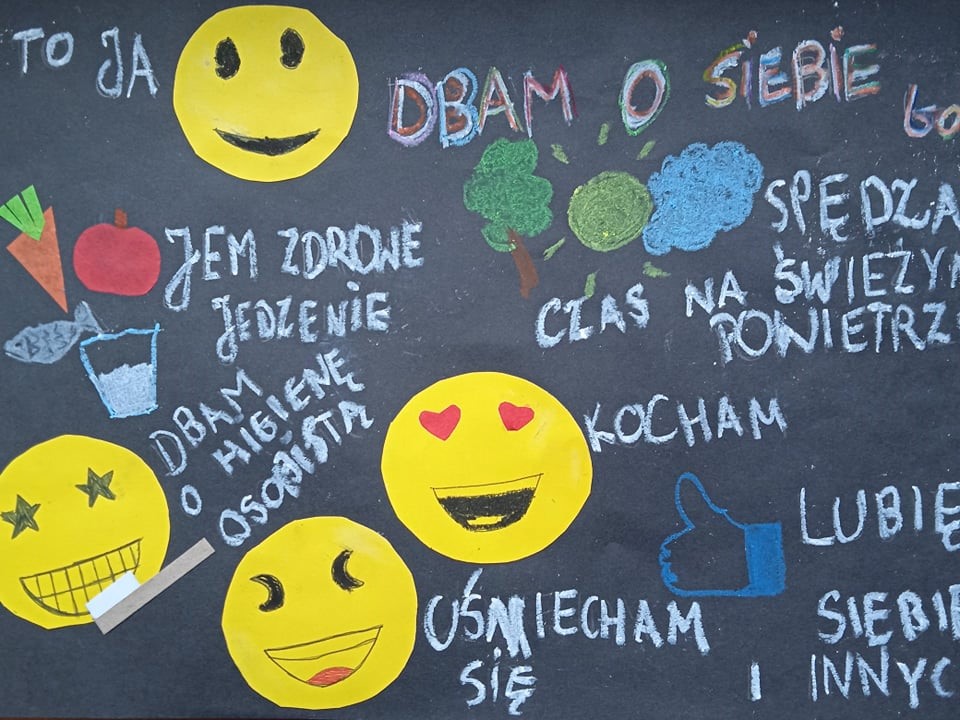 TO JA
DBAM O SIEBIE bo
JEM ZDROWE
JEDZENIE
SPĘDZA
CZAS NA ŚWIEŻYM
POWIETRZ
DBAM
O HIGIENĘ
OSOBISTĄ
KOCHAM
LUBIĘ
UŚMIECHAM
SIĘ
SIEBIE
I INNYC